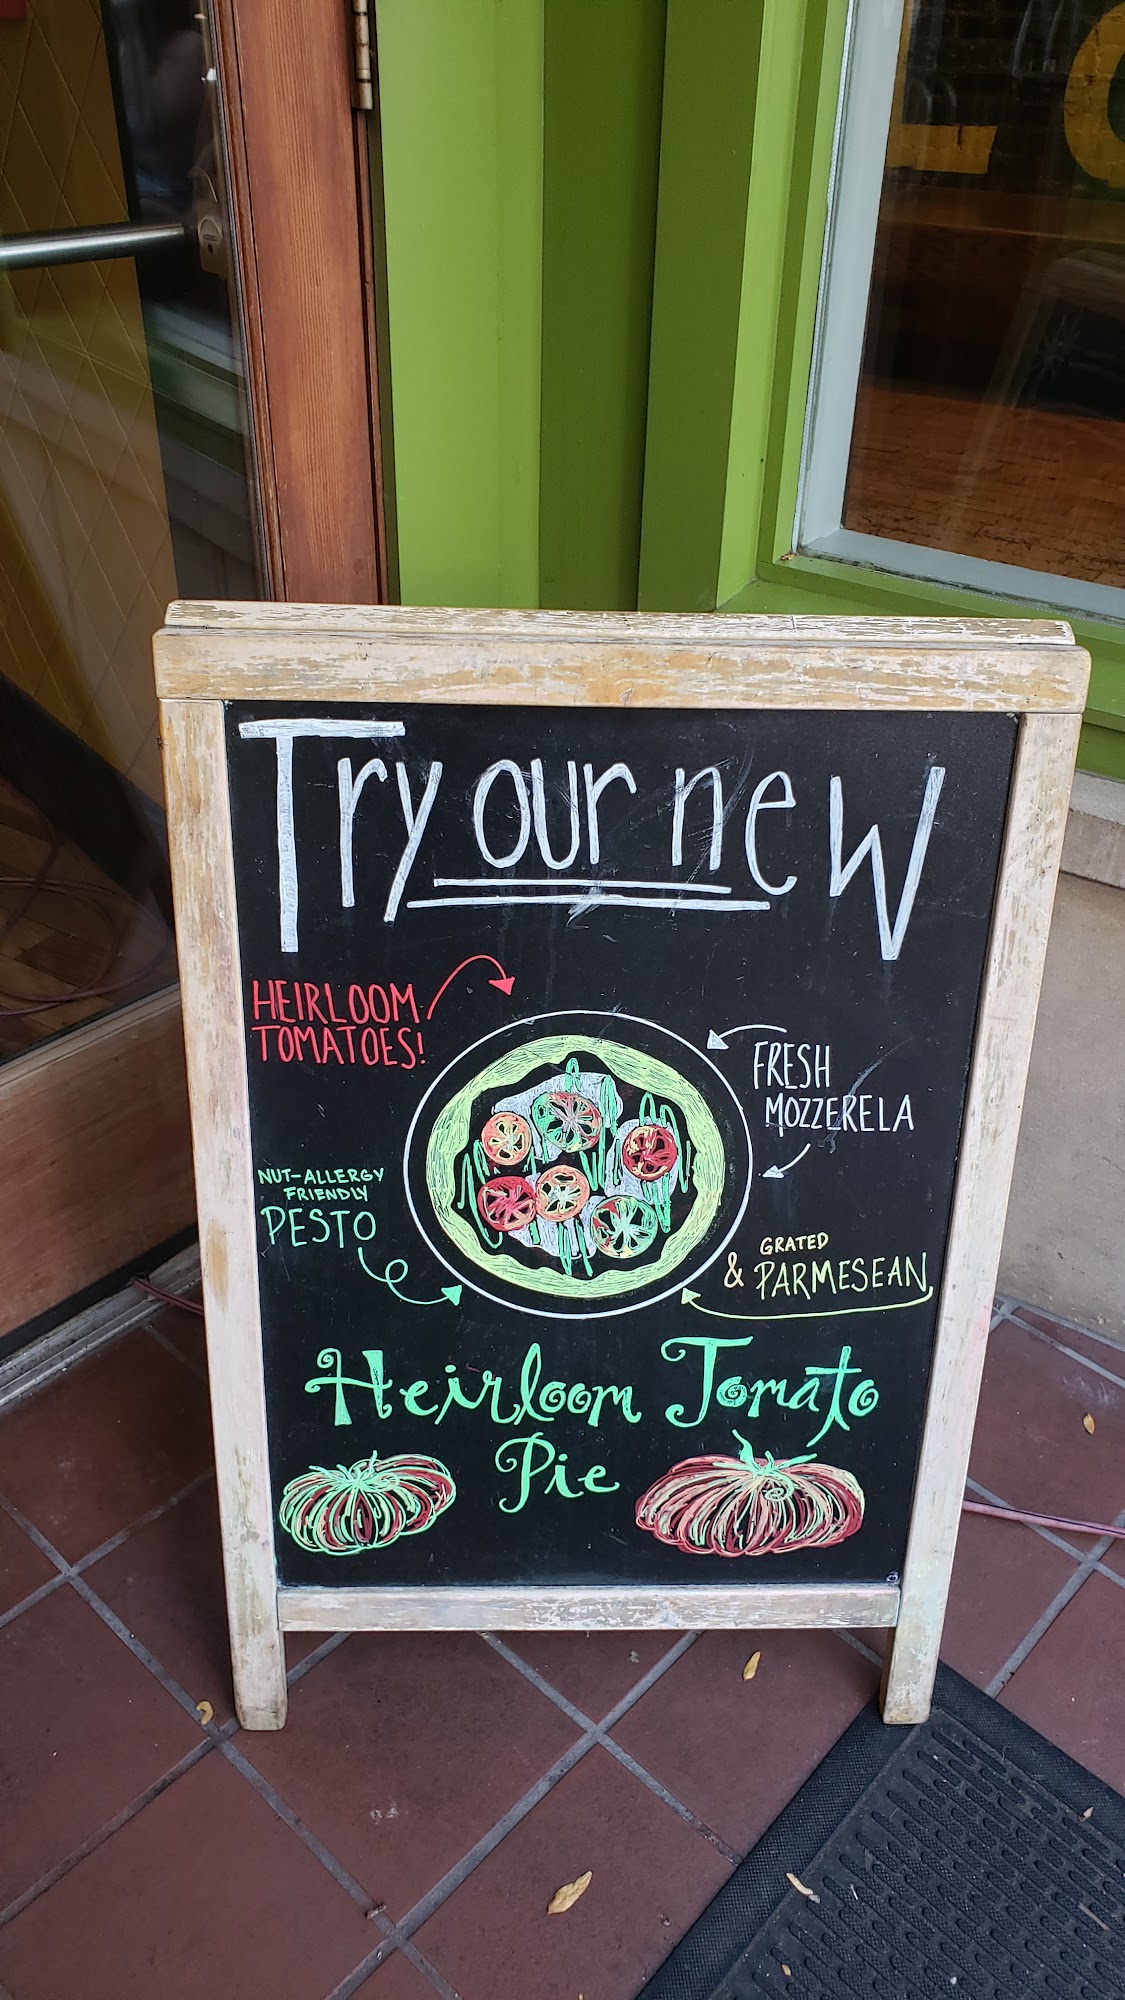 Try our new
HEIRLOOM
TOMATOES!
FRESH
MOZZERELA
NUT-ALLERGY
FRIENDLY
PESTO
& GRATED
PARMESEAN
Heirloom Tomato
Pie